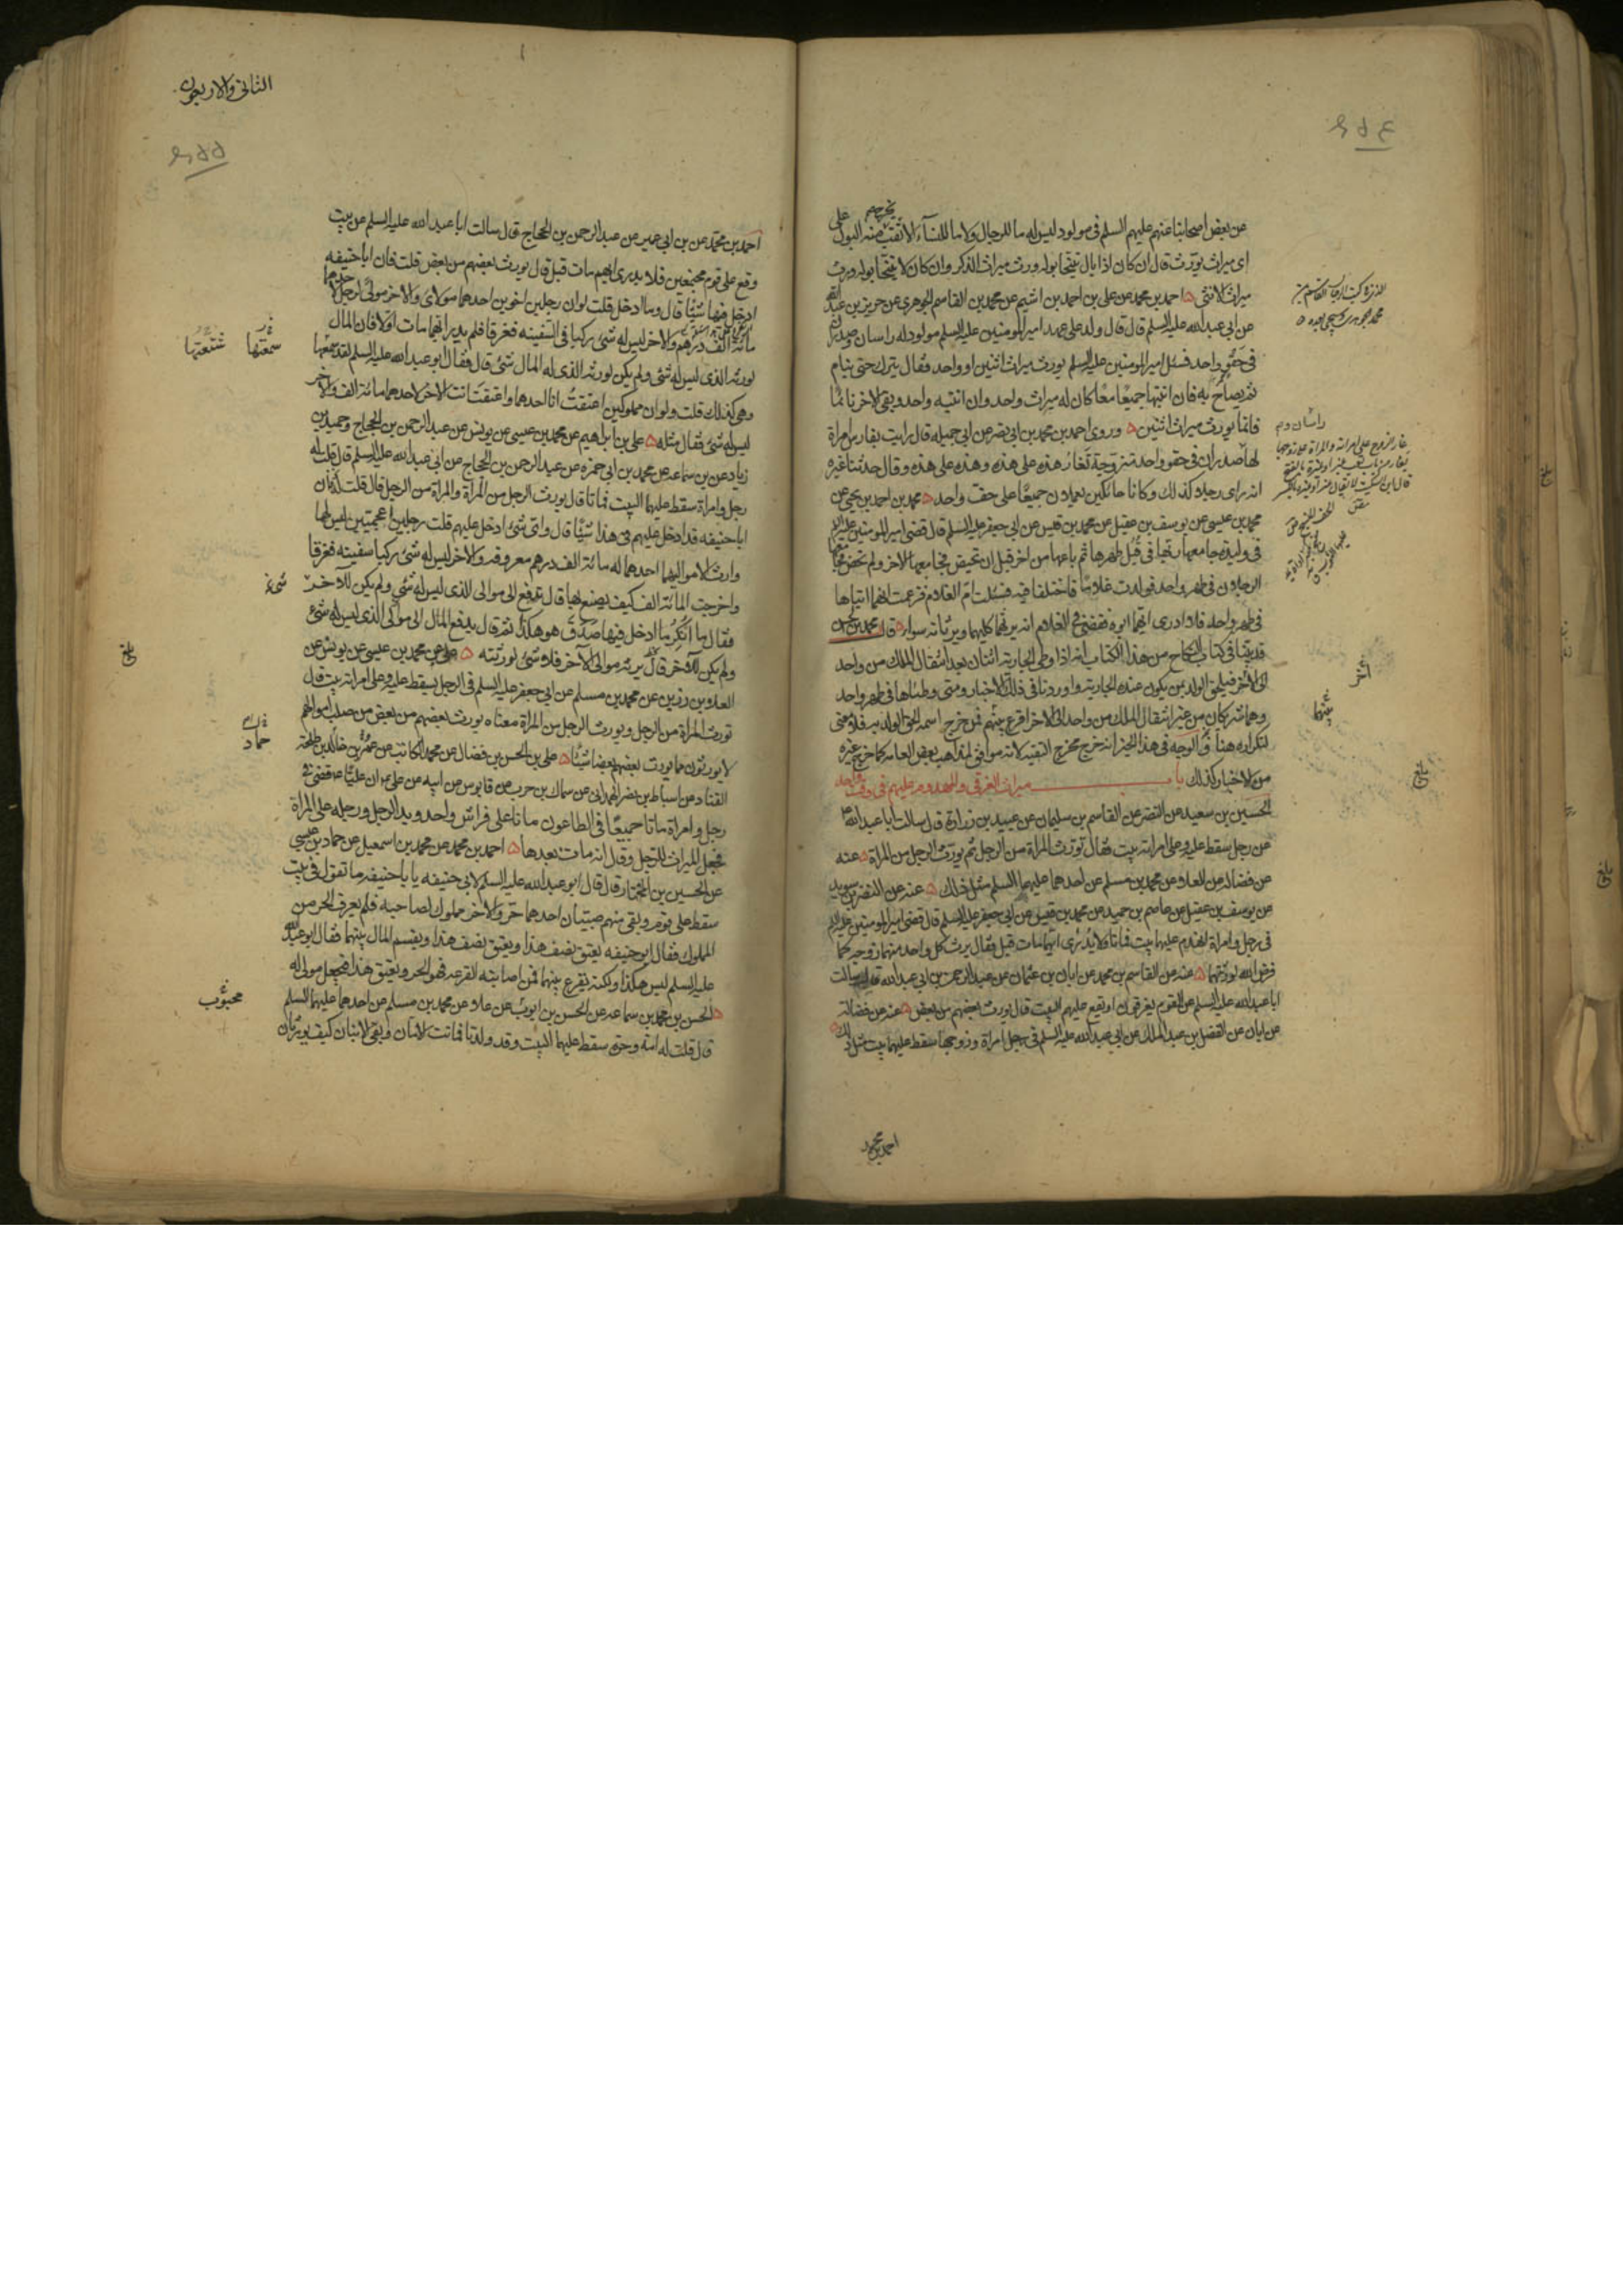 عن بعض اصحابنا عنهم عليهم السلم فى مولود ليس له ما للرجال ولا ما للنسآء الا ثقب يخرج منه البول على
اى ميراث يورث قال ان كان اذا بال يتنحا بوله ورث ميراث الذكر وان كان لا يتنحا بوله ورث
ميراث الانثى احمد بن محمد عن على بن احمد بن اشيم عن محمد بن القاسم الجوهرى عن حريز بن عبد الله
عن ابى عبد الله عليه السلم قال قال ولد على عهد امير المومنين عليه السلم مولود له راسان وصدران
فى حقو واحد فسئل امير المومنين عليه السلم يورث ميراث اثنين او واحد فقال يترك حتى ينام
ثم يصاح به فان انتبها جميعًا معًا كان له ميراث واحد وان انتبه واحد وبقى الاخر نائمًا
فانما يورث ميراث اثنين وروى احمد بن محمد بن ابى نصر عن ابى جميله قال رايت بفارس امراة
لها صدران فى حقو واحد متزوجة تغار هذه على هذه وهذه على هذه وقال حدثنا غيره
انه راى رجلا كذلك وكانا حائكين يعملان جميعًا على حف واحد محمد بن احمد بن يحيى عن
محمد بن عيسى عن يوسف بن عقيل عن محمد بن قيس عن ابى جعفر عليه السلم قال قضى امير المومنين عليه السلم
فى وليدة جامعها ربها فى قبل طهرها ثم باعها من اخر قبل ان تحيض فجامعها الاخر ولم تحض فجامعها
الرجلان فى طهر واحد فولدت غلامًا فاختلفا فيه فسئلت ام الغلام فزعمت انهما اتياها
فى طهر واحد فلا ادرى ايهما ابوه فقضى فى الغلام انه يرثهما كليهما ويرثانه سواء قال محمد بن الحسن
قد بينا فى كتاب النكاح من هذا الكتاب انه اذا وطى الجارية اثنان بعد انتقال الملك من واحد
الى الاخر فيلحق الولد بمن يكون عنده الجارية واوردنا فى ذلك الاخبار ومتى وطئاها فى طهر واحد
وهما شريكان من غير انتقال الملك من واحد الى الاخر اقرع بينهم فمن خرج اسمه الحق الولد به فلا معنى
لتكراره هنا والوجه فى هذا الخبر انه خرج مخرج التقية لانه موافق لمذهب بعض العامة كما خرج غيره
من الاخبار كذلك باب ميراث الغرقى والمهدوم عليهم فى وقت واحد
الحسين بن سعيد عن النضر عن القاسم بن سليمان عن عبيد بن زرارة قال سالت ابا عبد الله ع
عن رجل سقط عليه وعلى امراته بيت فقال تورث المراة من الرجل ثم يورث الرجل من المراة عنه
عن فضاله عن العلا عن محمد بن مسلم عن احدهما عليهما السلم مثل ذلك عنه عن النضر بن سويد
عن يوسف بن عقيل عن عاصم بن حميد عن محمد بن قيس عن ابى جعفر عليه السلم قال قضى امير المومنين عليه السلم
فى رجل وامراة انهدم عليهما بيت فماتا ولا يدرى ايهما مات قبل فقال يرث كل واحد منهما زوجه كما
فرض الله لورثتهما عنه عن القاسم بن محمد عن ابان بن عثمان عن عبد الرحمن بن ابى عبد الله قال سالت
ابا عبد الله عليه السلم عن القوم يغرقون او يقع عليهم البيت قال يورث بعضهم من بعض عنه عن فضالة
عن ابان عن الفضل بن عبد الملك عن ابى عبد الله عليه السلم فى امراة وزوجها سقط عليهما بيت مثل ذلك
احمد بن محمد
بلغ
الثانى والاربعون
احمد بن محمد عن بن ابى عمير عن عبد الرحمن بن الحجاج قال سالت ابا عبد الله عليه السلم عن بيت
وقع على قوم مجتمعين فلا يدرى ايهم مات قبل قال يورث بعضهم من بعض قلت فان ابا حنيفه
ادخل فيها شيئًا قال وما ادخل قلت لو ان رجلين اخوين احدهما مولاى والاخر مولى لرجل لاحدهما
مائة الف درهم والاخر ليس له شئ ركبا فى السفينه فغرقا فلم يدر ايهما مات اولا فان المال
لورثه الذى ليس له شئ ولم يكن لورثه الذى له المال شئ قال فقال ابو عبد الله عليه السلم لقد سمعها
وهى كذلك قلت ولو ان مملوكين اعتقت انا احدهما واعتقت انت الاخر لاحدهما مائة الف والاخر
ليس له شئ فقال مثله على بن ابراهيم عن محمد بن عيسى عن يونس عن عبد الرحمن بن الحجاج وحميد بن
زياد عن بن سماعه عن محمد بن ابى حمزه عن عبد الرحمن بن الحجاج عن ابى عبد الله عليه السلم قال قلت له
رجل وامراة سقط عليهما البيت فماتا قال يورث الرجل من المراة والمراة من الرجل قال قلت فان
ابا حنيفه قد ادخل عليهم فى هذا شيئًا قال واى شئ ادخل عليهم قلت رجلين اعجميين ليس لهما
وارث الا مواليهما احدهما له مائة الف درهم معروفه والاخر ليس له شئ ركبا سفينه فغرقا
واخرجت المائة الف كيف يصنع بها قال تدفع الى موالى الذى ليس له شئ ولم يكن للاخر شئ
فقال ما انكر ما ادخل فيها صدق هو هكذا ثم قال يدفع المال الى مولى الذى ليس له شئ
ولم يكن للاخر مال يرثه موالى الآخر فلا شئ لورثته على عن محمد بن عيسى عن يونس عن
العلا بن رزين عن محمد بن مسلم عن ابى جعفر عليه السلم فى الرجل يسقط عليه وعلى امراته بيت قال
تورث المراة من الرجل ويورث الرجل من المراة معناه يورث بعضهم من بعض من صلب اموالهم
لا يورثون مما يورث بعضهم بعضا شيئًا على بن الحسن بن فضال عن محمد الكاتب عن عمرو بن خالد بن طلحة
القناد عن اسباط بن نصر الهمدانى عن سماك بن حرب عن قابوس عن ابيه عن على ع ان عليًا ع قضى فى
رجل وامراة ماتا جميعًا فى الطاعون ماتا على فراش واحد ويد الرجل ورجله على المراة
فجعل الميراث للرجل وقال انه مات بعدها احمد بن محمد عن محمد بن اسمعيل عن حماد بن عيسى
عن الحسين بن المختار قال قال ابو عبد الله عليه السلم لابى حنيفه يا با حنيفه ما تقول فى بيت
سقط على قوم وبقى منهم صبيان احدهما حر والاخر مملوك لصاحبه فلم يعرف الحر من
المملوك فقال ابو حنيفه يعتق نصف هذا ويعتق نصف هذا ويقسم المال بينهما فقال ابو عبد الله
عليه السلم ليس هكذا ولكنه يقرع بينهما فمن اصابته القرعه فهو الحر ويعتق هذا فيجعل مولى له
الحسن بن محمد بن سماعه عن الحسن بن ايوب عن علا عن محمد بن مسلم عن احدهما عليهما السلم
قال قلت له امة وحرة سقط عليهما البيت وقد ولدتا فماتت الامان وبقى الابنان كيف يورثان
سمعتها
حماد
محبوب
بلغ